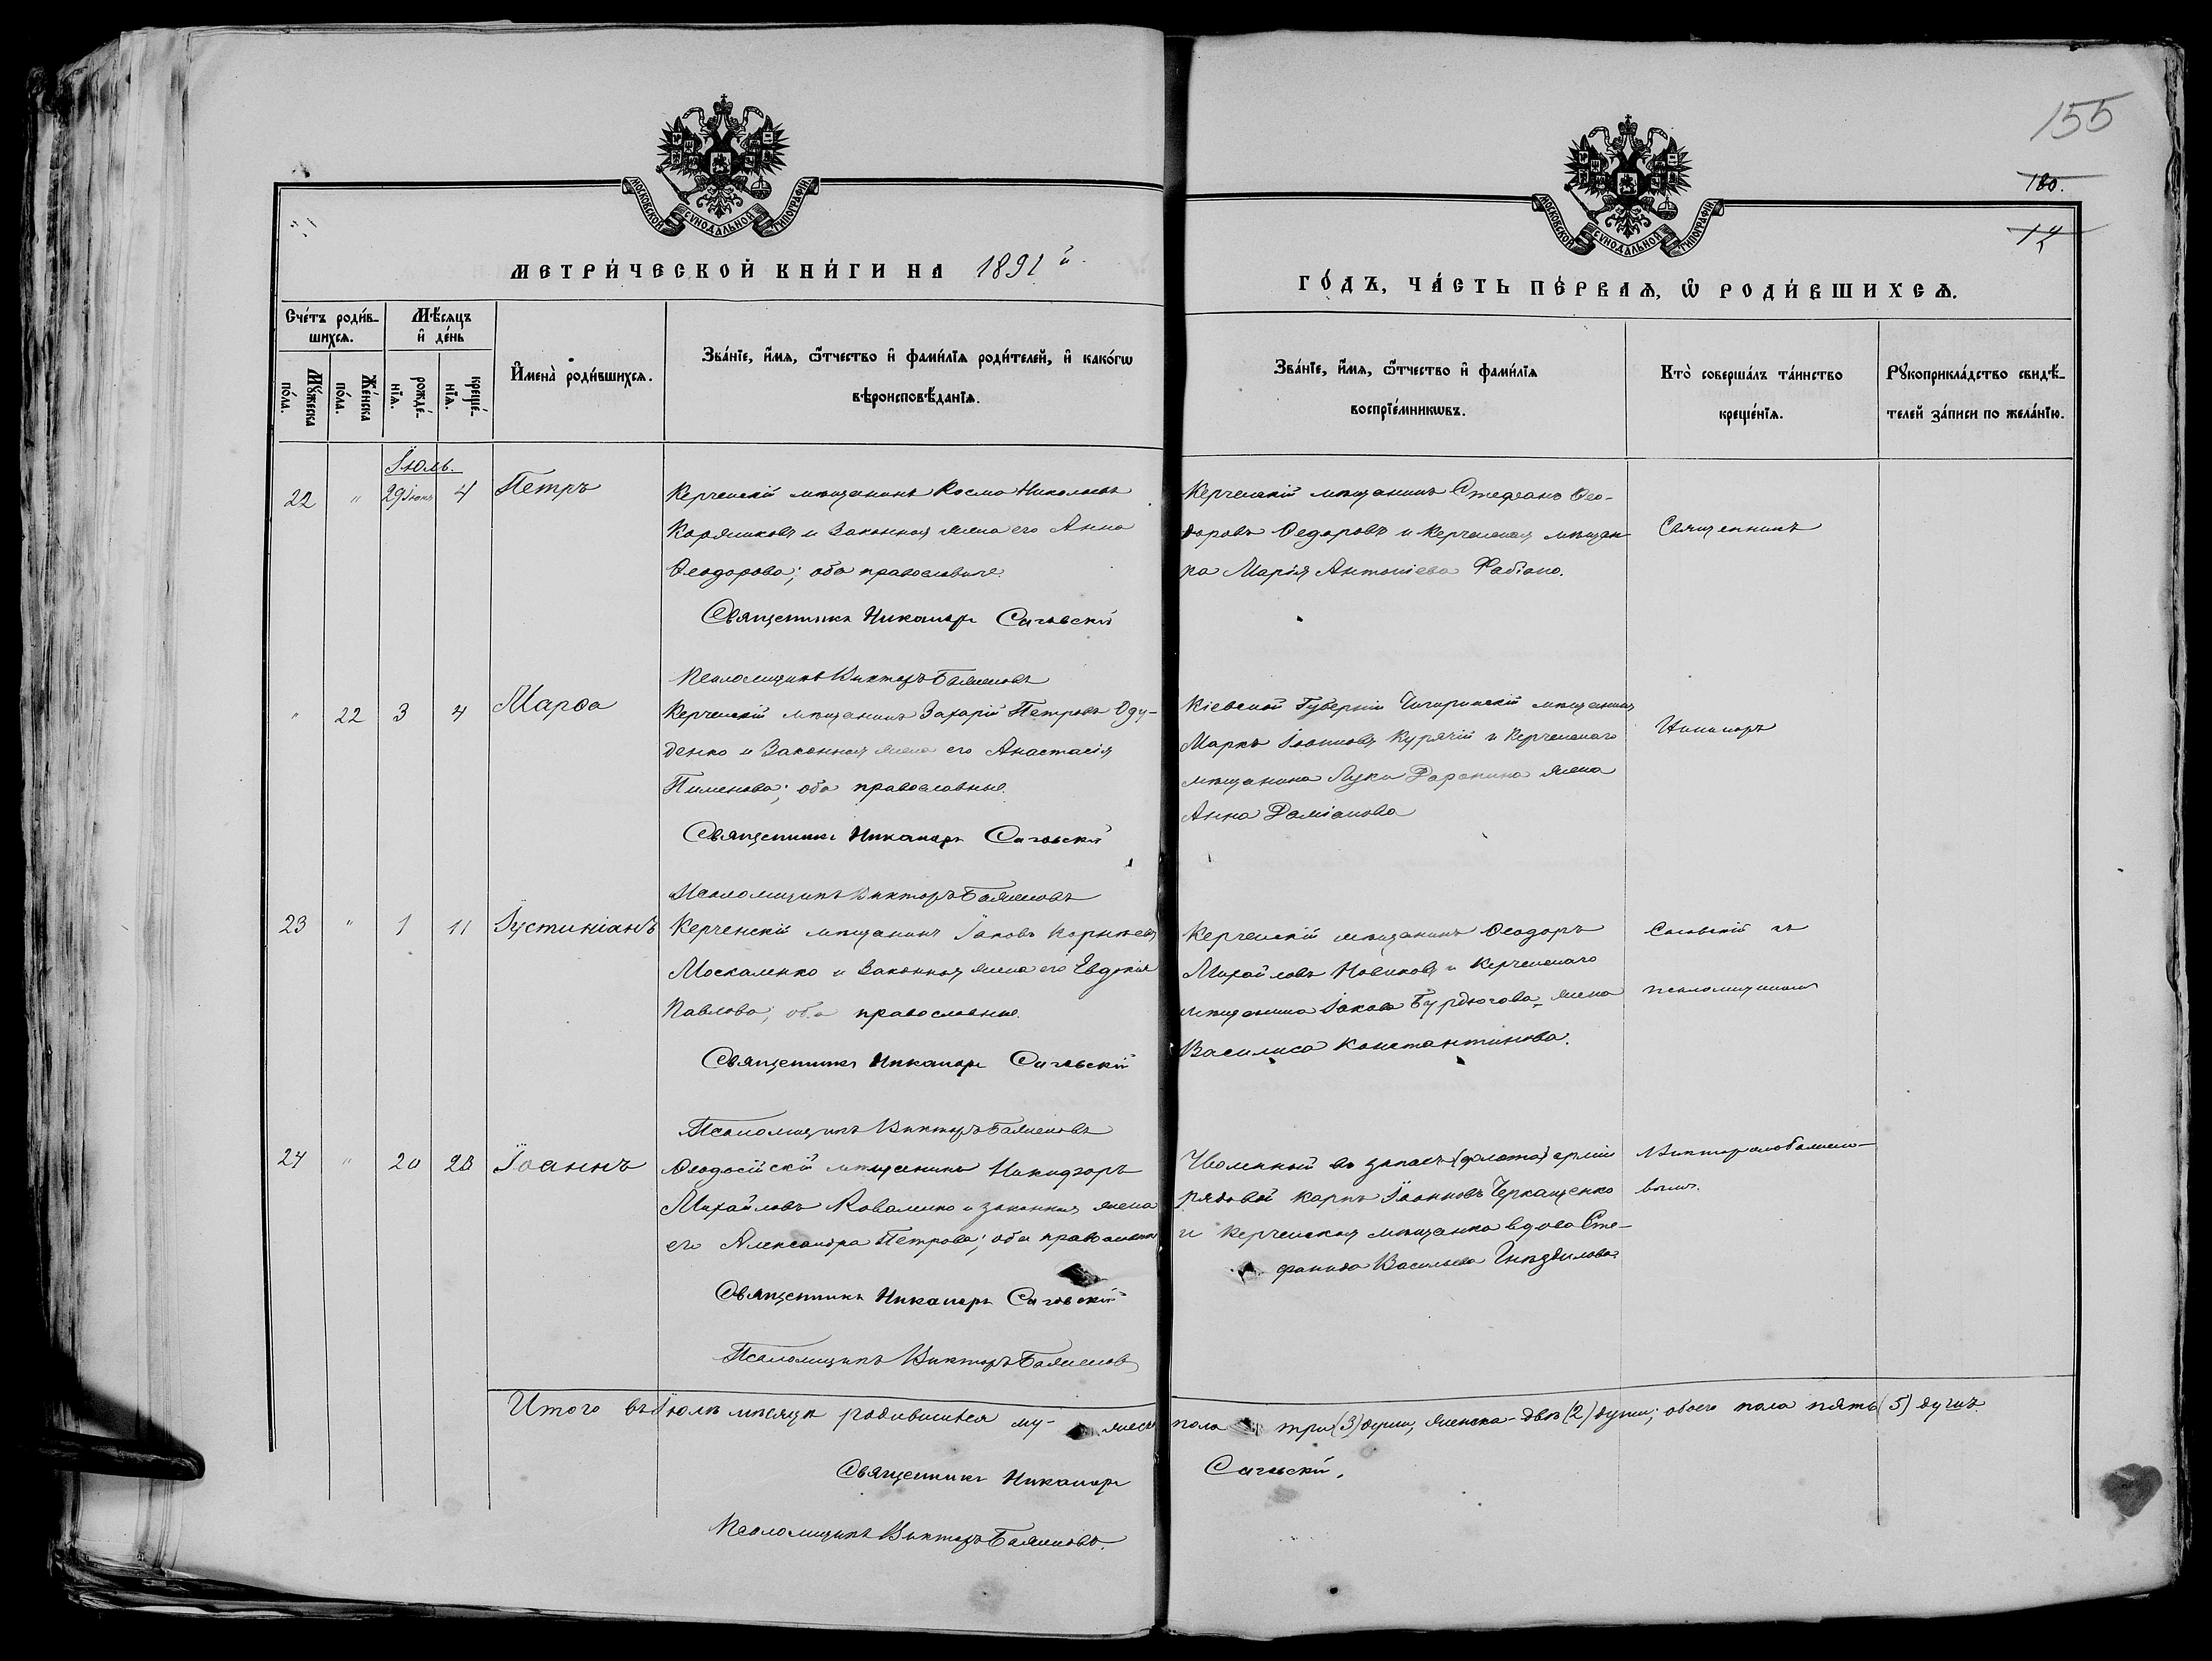 155
180.
14
МОСКОВСКОЙ СѴНОДАЛЬНОЙ ТИПОГРАФІИ
МОСКОВСКОЙ СѴНОДАЛЬНОЙ ТИПОГРАФІИ
МЕТРИ́ЧЕСКОЙ КНИ́ГИ НА 1891й.
ГО́ДЪ, ЧА́СТЬ ПЕ́РВАѦ, Ѡ҆ РОДИ́ВШИХСѦ.
Сче́тъ роди́в-
шихсѧ.
Мѣ́сѧцъ
и҆ де́нь
Мꙋ́жеска
по́ла.
Же́нска
по́ла.
рожде́-
нїѧ.
креще́-
нїѧ.
И҆мена̀ роди́вшихсѧ.
Зва́нїе, и҆́мѧ, ѻ҆́тчество и҆ фами́лїѧ роди́телей, и҆ како́гѡ
вѣроисповѣ́данїѧ.
Зва́нїе, и҆́мѧ, ѻ҆́тчество и҆ фами́лїѧ
воспрїе́мникѡвъ.
Кто̀ соверша́лъ та́инство
креще́нїѧ.
Рꙋкоприкла́дство свидѣ́-
телей за́писи по жела́нїю.
Іюль.
22 " 29 Іюнь 4 Петръ
Керченскій мѣщанинъ Косма Николаевъ
и законная жена его Анна
Ѳеодорова; оба православные.
Священникъ Никаноръ Саговскій
Псаломщикъ Викторъ Баженовъ
Керченскій мѣщанинъ Стефанъ Ѳео-
доровъ Ѳедоровъ и Керченская мѣщан-
ка Марія Антоніева Фабіано.
Священникъ
" 22 3 4 Марѳа
Керченскій мѣщанинъ Захарій Петровъ Оду-
денко и законная жена его Анастасія
Пименова; оба православные.
Священникъ Никаноръ Саговскій
Псаломщикъ Викторъ Баженовъ
Кіевской Губерніи Чигиринскій мѣщанинъ
Маркъ Іоанновъ Курячій и Керченскаго
мѣщанина Луки жена
Анна Даміанова
Никаноръ
23 " 1 11 Іустиніанъ
Керченскій мѣщанинъ Іаковъ Корнѣевъ
Москаленко и законная жена его Евдокія
Павлова; оба православные.
Священникъ Никаноръ Саговскій
Псаломщикъ Викторъ Баженовъ
Керченскій мѣщанинъ Ѳеодоръ
Михайловъ Новиковъ и Керченскаго
мѣщанина Іакова Бурдюгова, жена
Василиса Константинова.
Саговскій съ
псаломщикомъ
24 " 20 28 Іоаннъ
Ѳеодосійскій мѣщанинъ Никифоръ
Михайловъ Коваленко и законная жена
его Александра Петрова; оба православные
Священникъ Никаноръ Саговскій
Псаломщикъ Викторъ Баженовъ
Уволенный въ запасъ (флота) арміи
рядовой Карпъ Іоанновъ Черкащенко
и Керченская мѣщанка вдова Сте-
фанида Васильева Гнѣздилова.
Викторомъ Бажено-
вымъ.
Итого въ Іюлѣ мѣсяцѣ родившихся му- жеска пола три (3) души, женска - двѣ (2) души; обоего пола пять (5) душъ.
Священникъ Никаноръ Саговскій.
Псаломщикъ Викторъ Баженовъ.